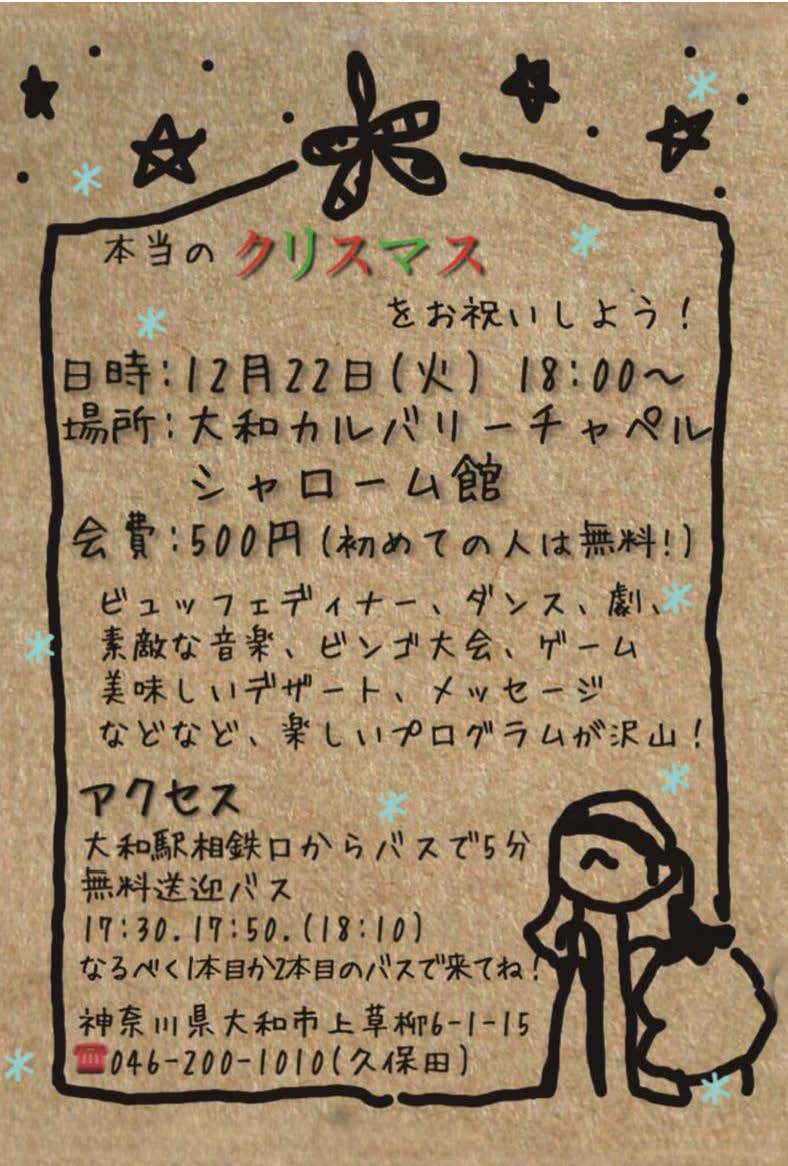 本当のクリスマス
をお祝いしよう！
日時：12月22日(火) 18:00～
場所：大和カルバリーチャペル
シャローム館
会費：500円(初めての人は無料！)
ビュッフェディナー、ダンス、劇、
素敵な音楽、ビンゴ大会、ゲーム
美味しいデザート、メッセージ
などなど、楽しいプログラムが沢山！
アクセス
大和駅相鉄口からバスで5分
無料送迎バス
17:30.17:50.(18:10)
なるべく1本目か2本目のバスで来てね！
神奈川県大和市上草柳6-1-15
☎046-200-1010(久保田)